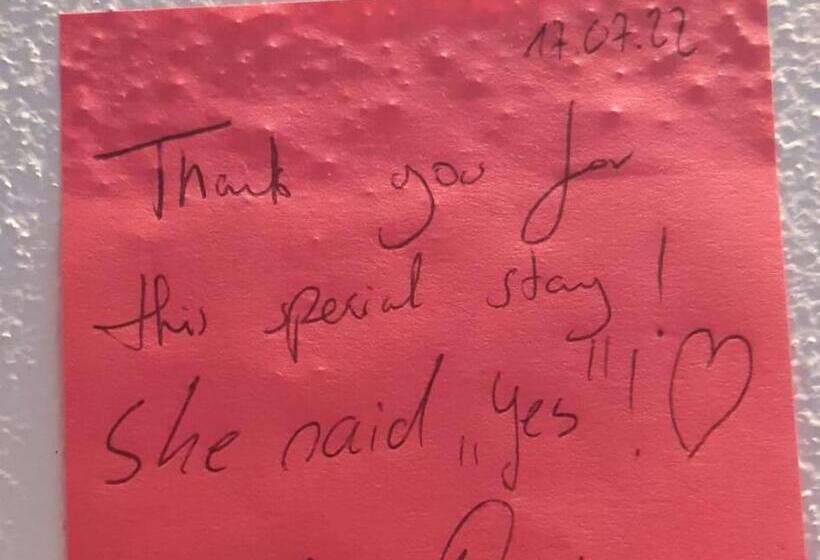 17.07.22
Thank you for
this special stay!
She said „yes"! ♡